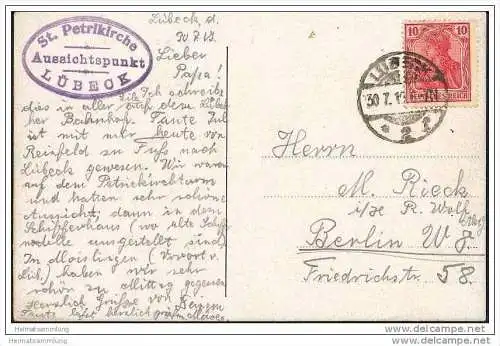 St. Petrikirche
Aussichtspunkt
LÜBECK
Lübeck, d.
30.7.13.
Lieber
Papa!
Ich schreibe
dies in aller Eile auf dem Lübek-
ker Bahnhof. Tante Jul
ist mit mir heute von
Reinfeld zu Fuß nach
Lübeck gewesen. Wir waren
auf dem Petrikirchturm
und hatten sehr schöne
Aussicht, dann in dem
Schifferhaus (wo alte Schiffs
modelle ausgestellt sind)
In Moislingen (Vorort v.
Lüb.) haben wir sehr
schön zu Mittag gegessen
Herzlich Grüße von
Tante läßt herzlich grüßen
10 10
DEUTSCHES REICH
LÜBECK
30.7.13
* 2 f
Herrn
M. Rieck
i/H R. Wolf
Berlin W 8.
Friedrichstr. 58.
Heimatsammlung
Heimatsammlung
http://www.ak-ansichtskarten.de